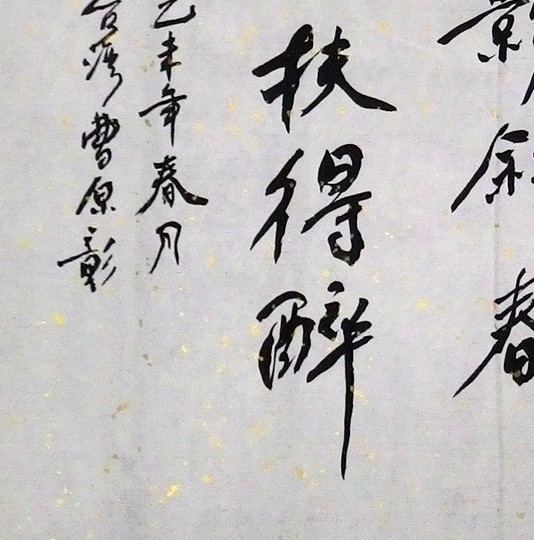 影斜春
扶得醉
乙未年春月
台湾曹原彰